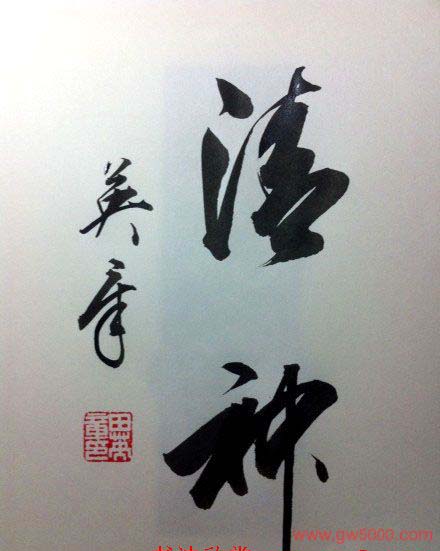 清神
英章
www.gw5000.com